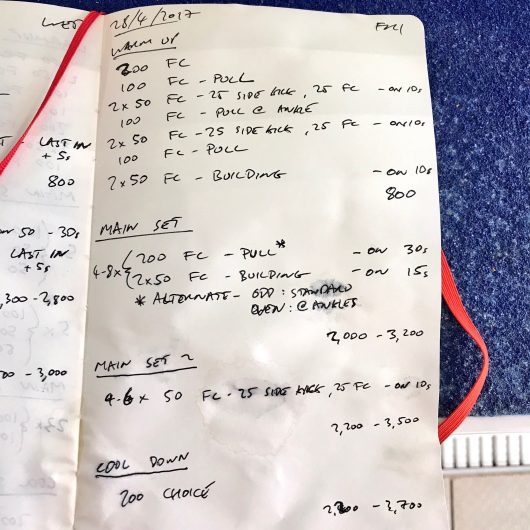 WED
LAST IN
+ 5s
800
ON 50 - 30s
LAST IN
+ 5s
,300 - 2,800
00 - 3,000
28/4/2017 FRI
WARM UP
200 FC
100 FC - PULL
2 x 50 FC - 25 SIDE KICK, 25 FC - ON 10s
100 FC - PULL @ ANKLE
2 x 50 FC - 25 SIDE KICK, 25 FC - ON 10s
100 FC - PULL
2 x 50 FC - BUILDING - ON 10s
800
MAIN SET
4-8x { 200 FC - PULL* - ON 30s
2x50 FC - BUILDING - ON 15s
* ALTERNATE - ODD : STANDARD
EVEN : @ ANKLES
2,000 - 3,200
MAIN SET 2
4-6 x 50 FC - 25 SIDE KICK, 25 FC - ON 10s
2,200 - 3,500
COOL DOWN
200 CHOICE
- 3,700